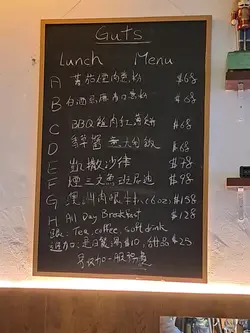 Guts
Lunch Menu
A 蕃茄 肉 意粉 $68
B 白酒 意粉 $68
C BBQ 肉 薯餅 $68
D 飯 $68
E 凱撒沙律 $78
F 煙三文魚班尼迪 $78
G 黑 肉眼 (6oz) $158
H All Day Breakfast $128
跟: Tea, coffee, soft drink
追加: 是日餐湯 $10, 甜品 $25
另收加一服務費